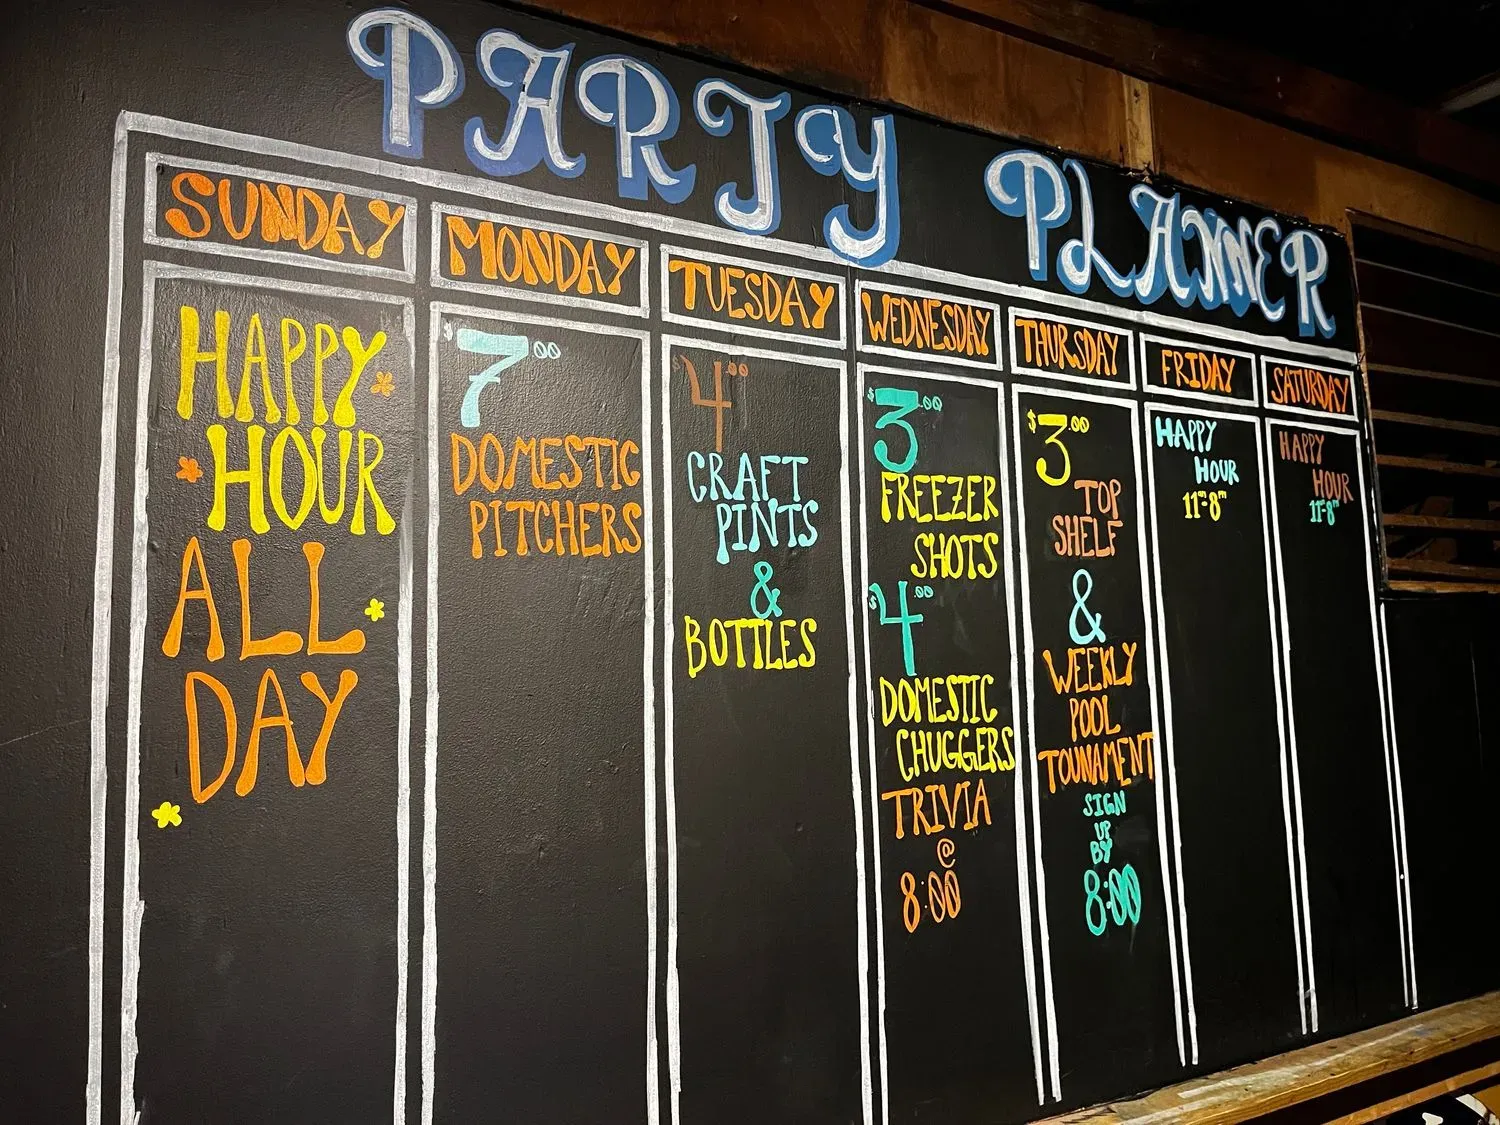 PARTY PLANNER
SUNDAY
HAPPY
HOUR
ALL
DAY
MONDAY
$7.00
DOMESTIC
PITCHERS
TUESDAY
$4.00
CRAFT
PINTS
&
BOTTLES
WEDNESDAY
$3.00
FREEZER
SHOTS
$4.00
DOMESTIC
CHUGGERS
TRIVIA
@
8:00
THURSDAY
$3.00
TOP
SHELF
&
WEEKLY
POOL
TOUNAMENT
SIGN
UP
BY
8:00
FRIDAY
HAPPY
HOUR
11-8
SATURDAY
HAPPY
HOUR
11-8